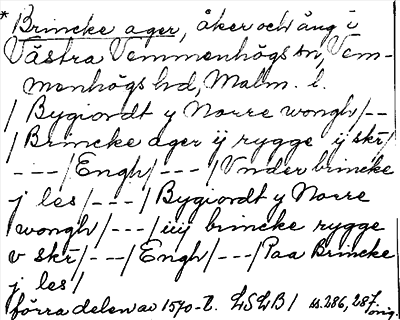 * Brincke ager, åker och äng i
Västra Vemmenhögs sn, Vem-
menhögs hd, Malm. l.
/ Bygiordt y Norre wongh/--
/ Brincke ager ij rygge ij skr/
---/Engh/---/Vnder brincke
j les/---/Bygiordt y Norre
wongh/---/iiij brincke rygge
v skr/---/Engh/---/Paa Brincke
j les/
förra delen av 1570-t. LSLB1 ss. 286, 287, orig.